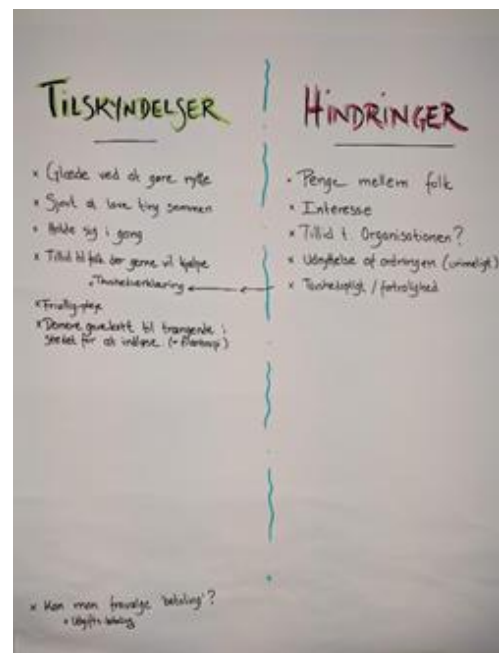 TILSKYNDELSER
× Glæde ved at gøre nytte
× Sjovt at lave ting sammen
× Holde sig i gang
× Tillid til folk der gerne vil hjælpe
• Tavshedserklæring
× Frivillig-pleje
× Donere gavekort til trængende i
stedet for at indløse. (= filantropi)
× Kan man fravælge 'betaling'?
× Udgifts-betaling
HINDRINGER
• Penge mellem folk
× Interesse
× Tillid t. Organisationen?
× Udnyttelse af ordningen (urimeligt)
× Tavshedspligt / fortrolighed